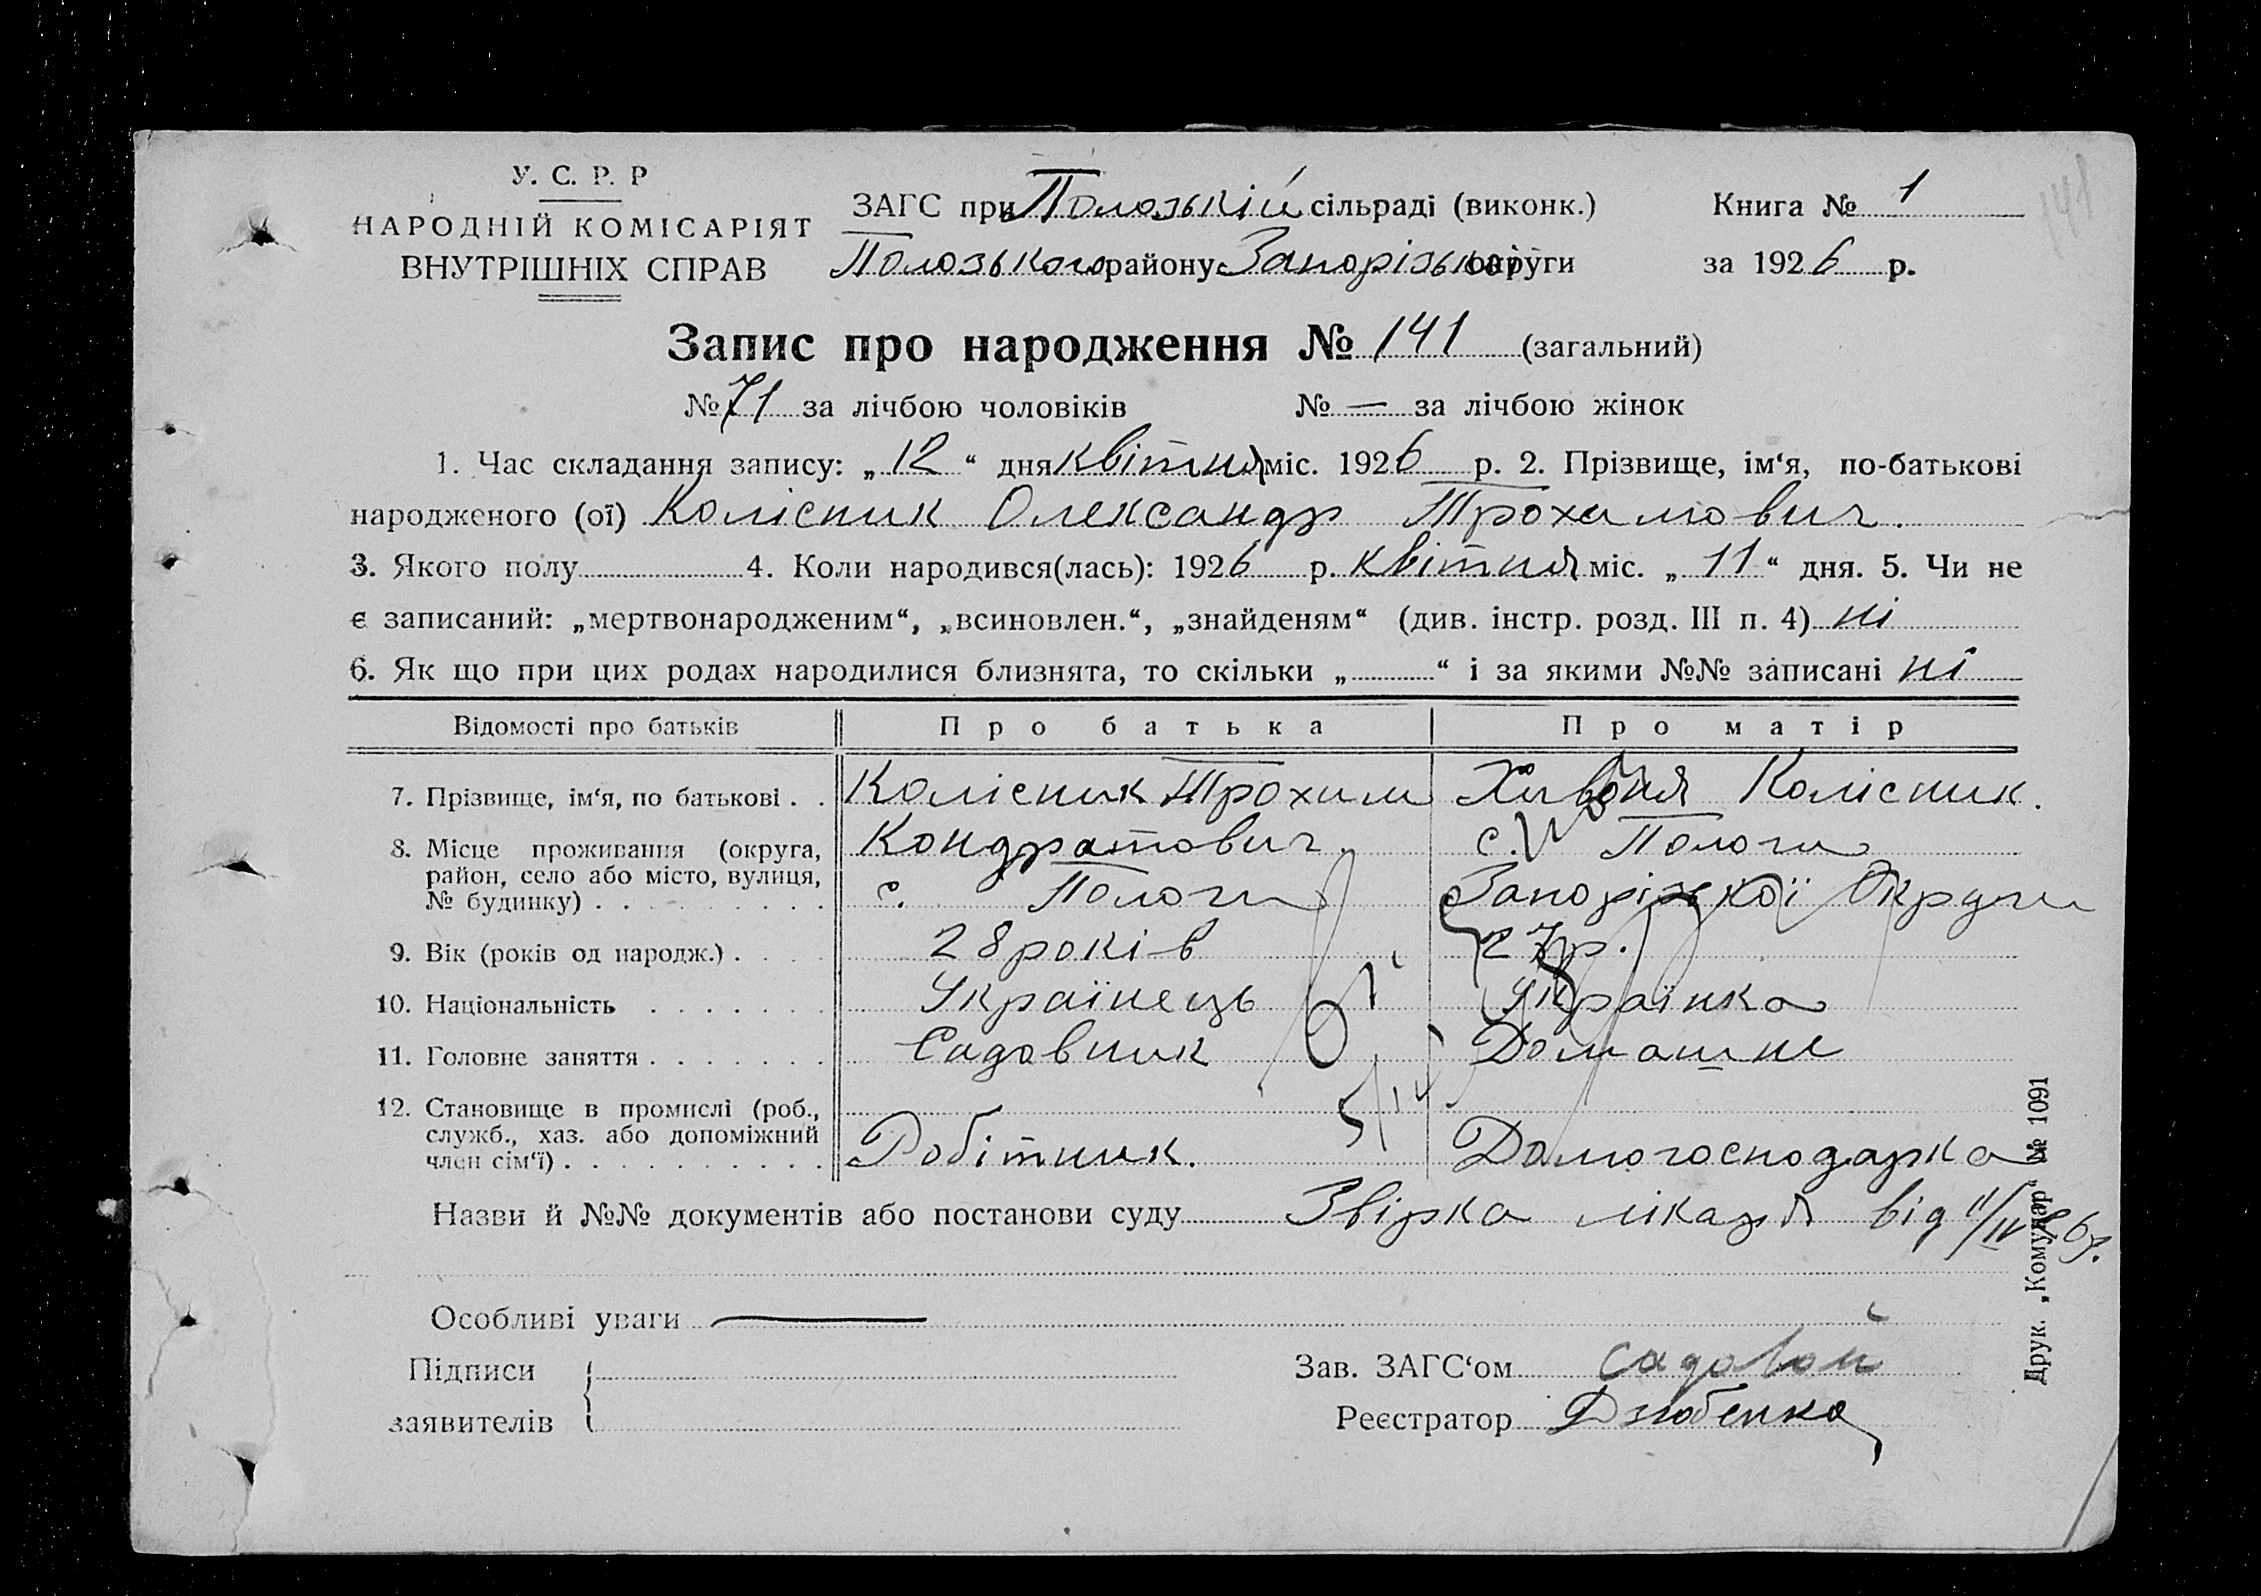 У. С. Р. Р
НАРОДНІЙ КОМІСАРІЯТ
ВНУТРІШНІХ СПРАВ
ЗАГС при Полозькій сільраді (виконк.)
Полозького району Запорізької округи
Книга № 1
за 1926 р.
141
Запис про народження № 141 (загальний)
№ 71 за лічбою чоловіків № — за лічбою жінок
1. Час складання запису: „12“ дня квітня міс. 1926 р. 2. Прізвище, ім‘я, по-батькові
народженого (ої) Колісник Олександр Трохимович.
3. Якого полу 4. Коли народився(лась): 1926 р. квітня міс. „11“ дня. 5. Чи не
є записаний: „мертвонародженим“, „всиновлен.“, „знайденям“ (див. інстр. розд. III п. 4) ні
6. Як що при цих родах народилися близнята, то скільки „ “ і за якими №№ записані ні
Відомості про батьків Про батька Про матір
7. Прізвище, ім‘я, по батькові . . Колісник Трохим Кондратович. Хивоня Колісник.
8. Місце проживання (округа, район, село або місто, вулиця, № будинку) . с. Пологи с. Пологи Запорізької Округи
9. Вік (років од народж.) . 28 років 27 р.
10. Національність Українець Українка
11. Головне заняття . Садовник Домашнє
12. Становище в промислі (роб., служб., хаз. або допоміжний член сім‘ї) . Робітник. Домогосподарка
Назви й №№ документів або постанови суду Звірка лікаря від 11/IV 26р.
Особливі уваги —
Підписи
заявителів
Зав. ЗАГС‘ом Садовой
Реєстратор Дзюбенко
Друк. „Комунар“ № 1091